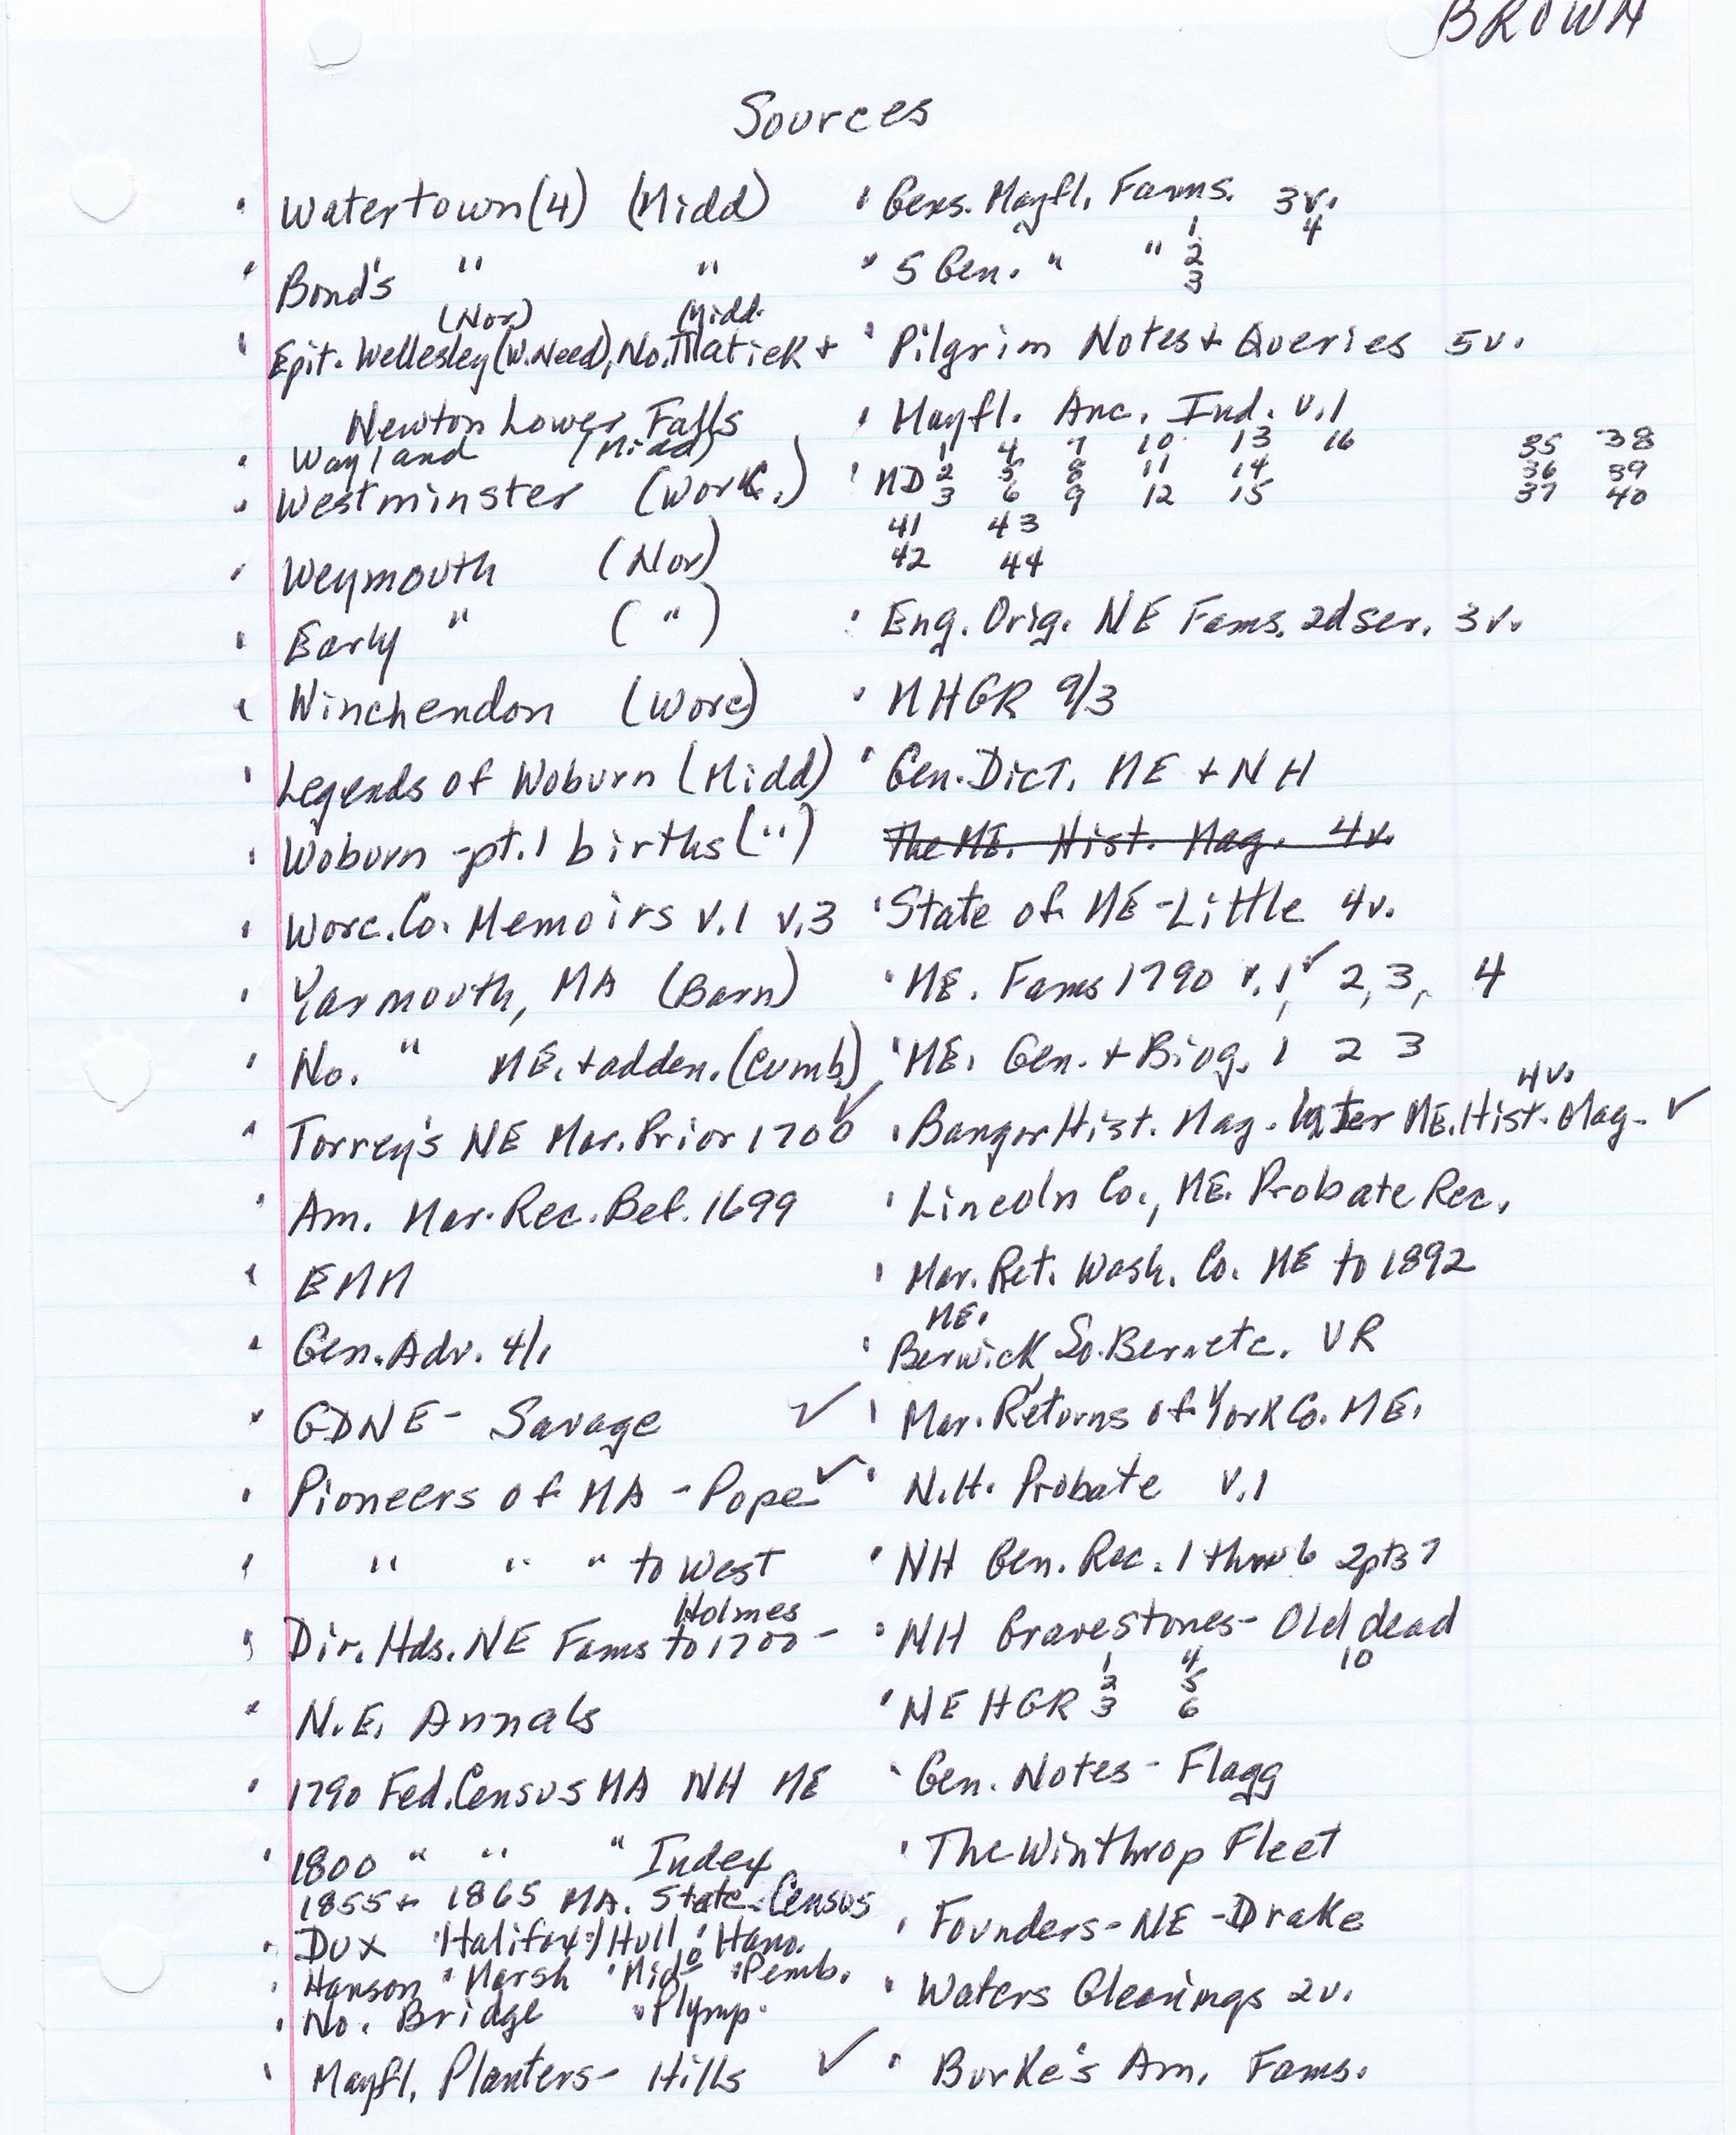 BROWN
Sources
Watertown (4) (Midd)
Bond's " "
(Nor) (Midd.
Epit. Wellesley (W. Need), No. Natick +
Newton Lower Falls
Wayland (Midd)
Westminster (Worc.)
Weymouth (Nor)
Early " ( " )
Winchendon (Worc)
Legends of Woburn (Midd)
Woburn - pt. 1 births ( " )
Worc. Co. Memoirs v.1 v.3
Yarmouth, MA (Barn)
No. " ME. + adden. (Cumb)
Torrey's NE Mar. Prior 1700 ✓
Am. Mar. Rec. Bef. 1699
EMM
Gen. Adv. 4/1
GDNE - Savage ✓
Pioneers of MA - Pope ✓
" " " to West
Holmes
Dir. Hds. NE Fams to 1700 -
N.E. Annals
1790 Fed. Census MA NH ME
1800 " " " Index
1855 + 1865 MA. State Census
Dux Halifax Hull Hano.
Hanson Marsh Mido Pemb.
No. Bridge Plymp.
Mayfl. Planters - Hills ✓
Gens. Mayfl. Fams. 3v.
1 4
5 Gen. " " 2
3
Pilgrim Notes + Queries 5v.
Mayfl. Anc. Ind. v.1
1 4 7 10 13 16 35 38
MD 2 5 8 11 14 36 39
3 6 9 12 15 37 40
41 43
42 44
Eng. Orig. NE Fams. 2d ser. 3v.
NHGR 9/3
Gen. Dict. ME + NH
The ME. Hist. Mag. 4v.
State of ME - Little 4v.
ME. Fams 1790 v.1 ✓, 2, 3, 4
ME. Gen. + Biog. 1 2 3
4v.
Bangor Hist. Mag. later ME. Hist. Mag. ✓
Lincoln Co., ME. Probate Rec.
Mar. Ret. Wash. Co. ME to 1892
ME.
Berwick, So. Ber. etc. VR
Mar. Returns of York Co. ME.
N.H. Probate v.1
NH Gen. Rec. 1 thru 6 2pts 7
NH Gravestones - Old dead
1 4 10
2 5
NEHGR 3 6
Gen. Notes - Flagg
The Winthrop Fleet
Founders - NE - Drake
Waters Gleanings 2v.
Burke's Am. Fams.